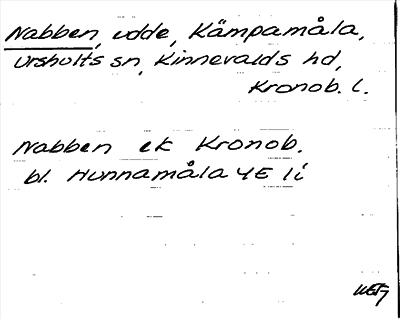 Nabben, udde, Kämpamåla,
Urshults sn, Kinnevalds hd,
Kronob. l.
Nabben ek Kronob.
bl. Hunnamåla 4E 1i